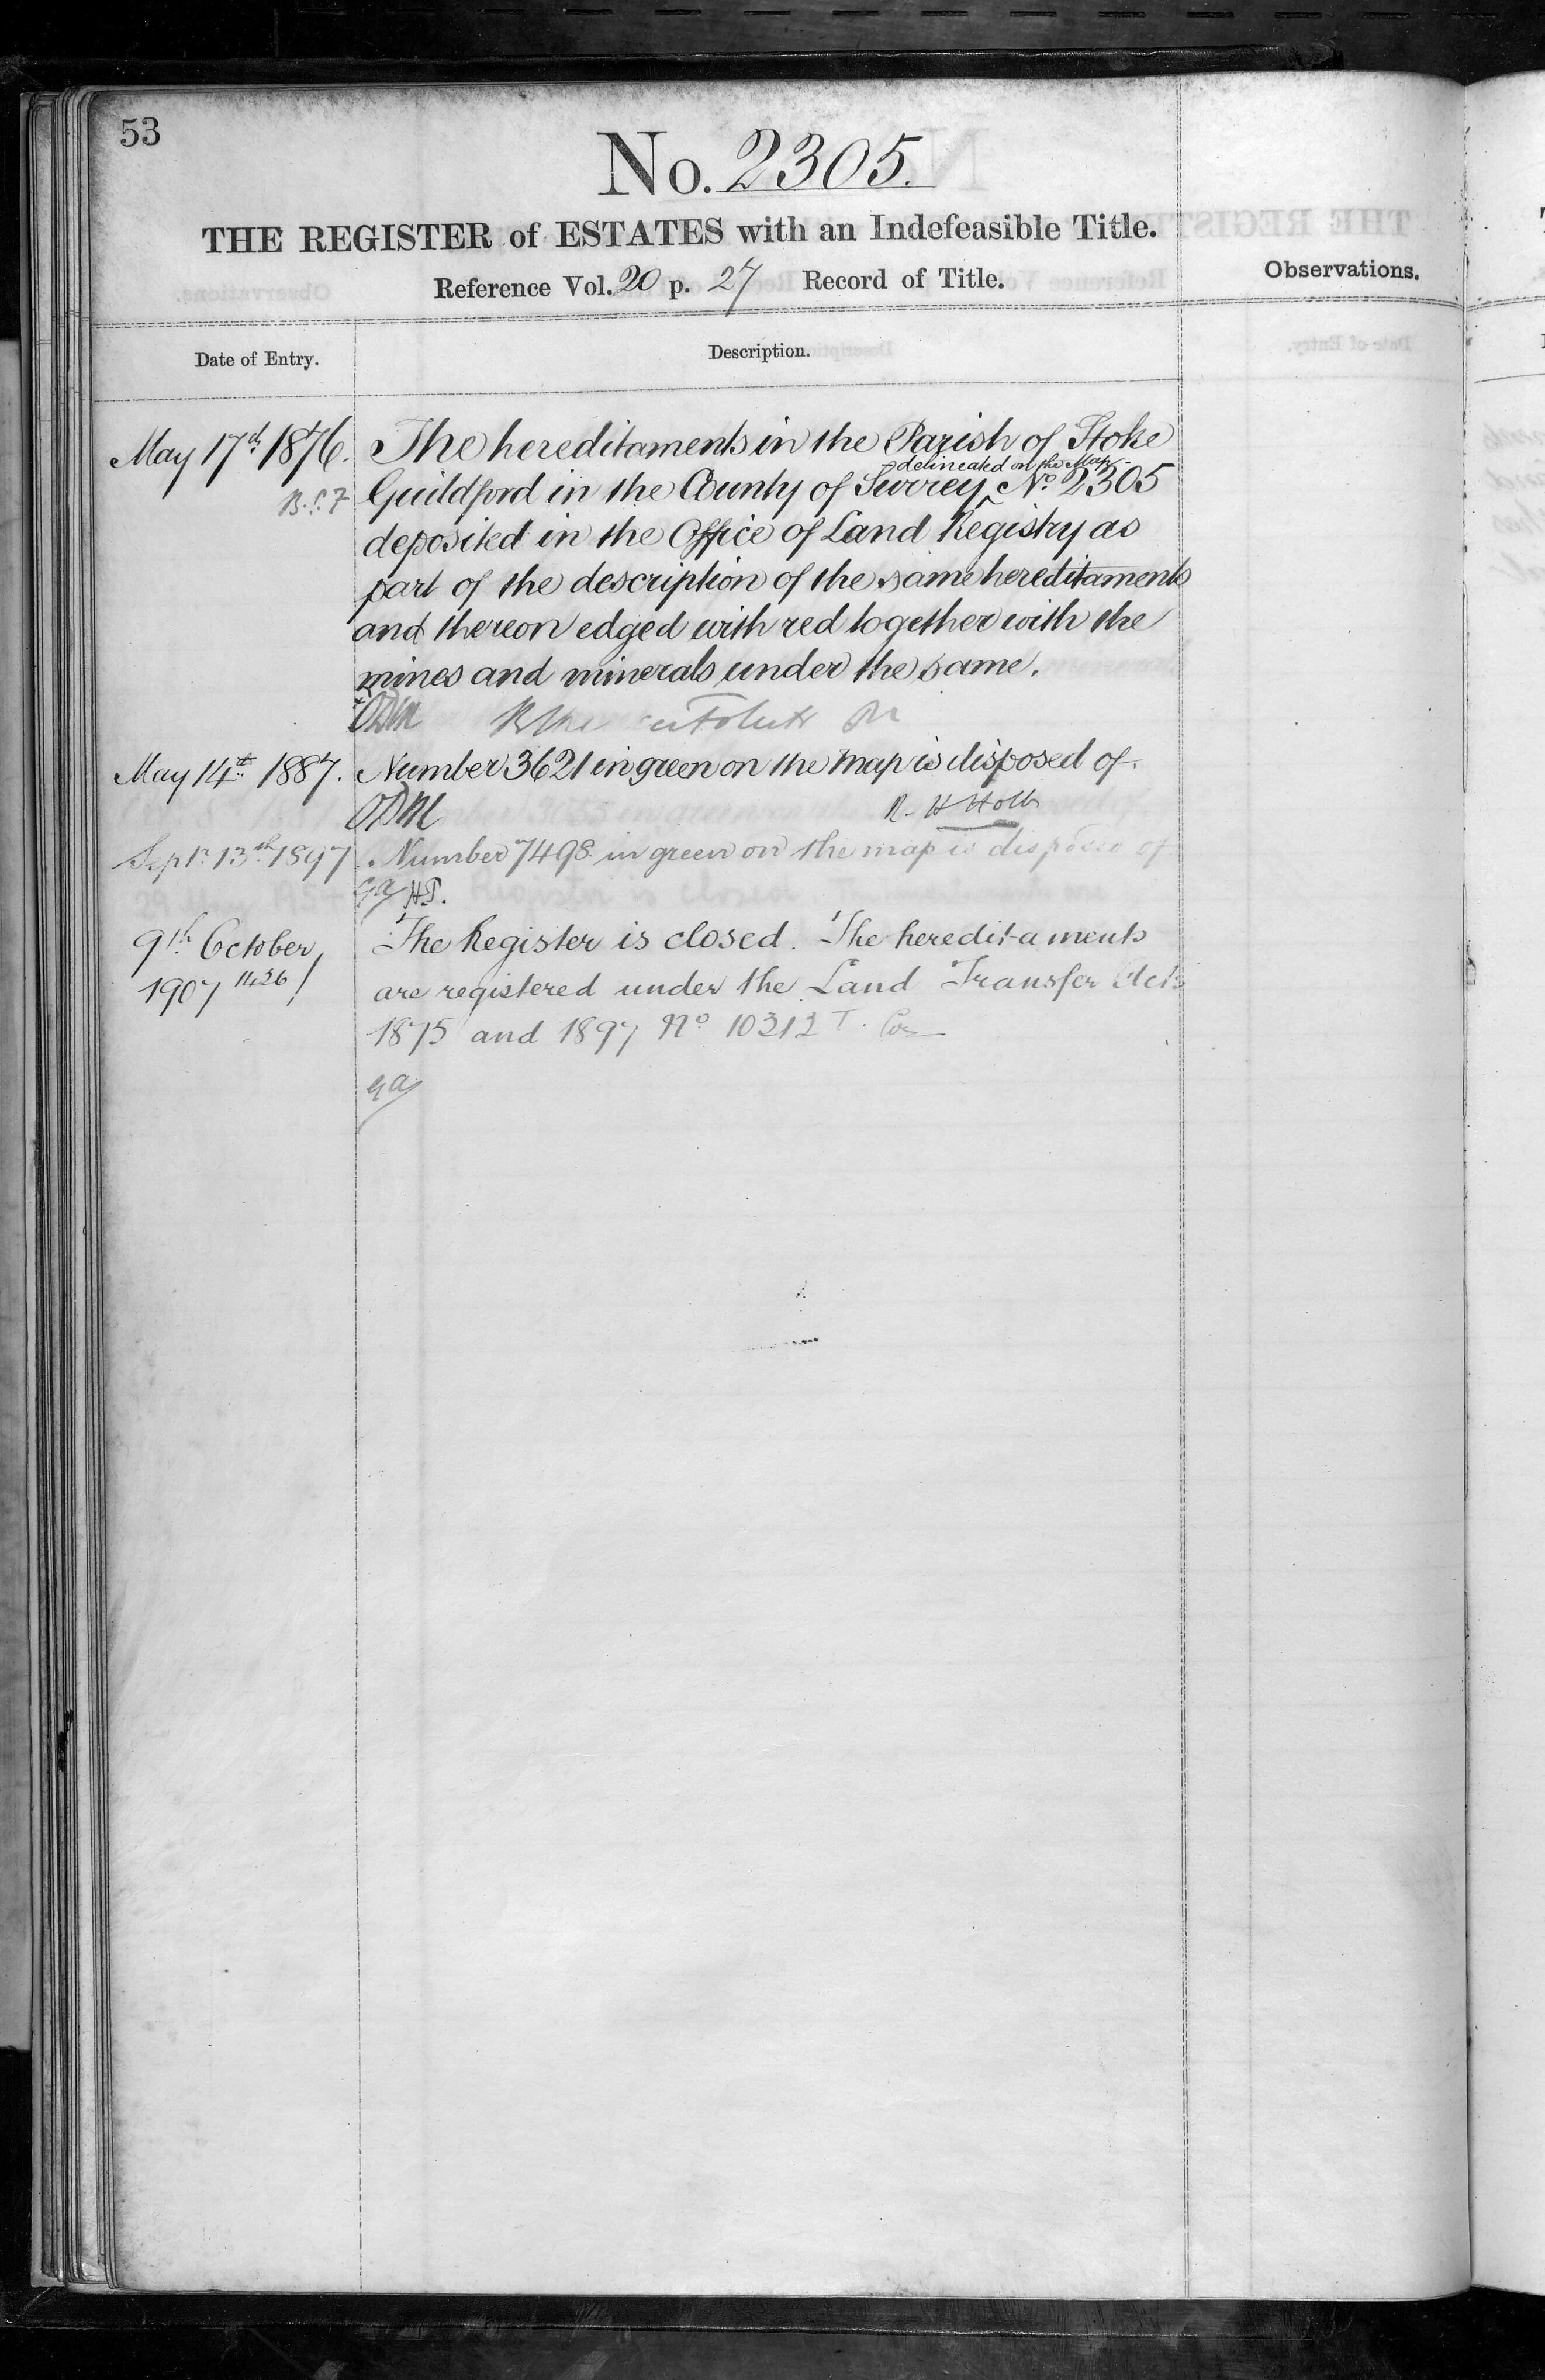 53
No. 2305.
THE REGISTER of ESTATES with an Indefeasible Title.
Reference Vol. 20 p. 27 Record of Title.
Observations.
Date of Entry.
Description.
May 17th 1876. The hereditaments in the Parish of Stoke
delineated on the Map
B.S.F Guildford in the County of Surrey ^ No. 2305
deposited in the Office of Land Registry as
part of the description of the same hereditaments
and thereon edged with red together with the
mines and minerals under the same.
May 14th 1887. Number 3621 in green on the map is disposed of.
R. H Holt
Septr. 13th 1897 Number 7498 in green on the map is disposed of
GA HP.
9th October The Register is closed. The hereditaments
1907 1426 / are registered under the Land Transfer Acts
1875 and 1897 No 10212
GA